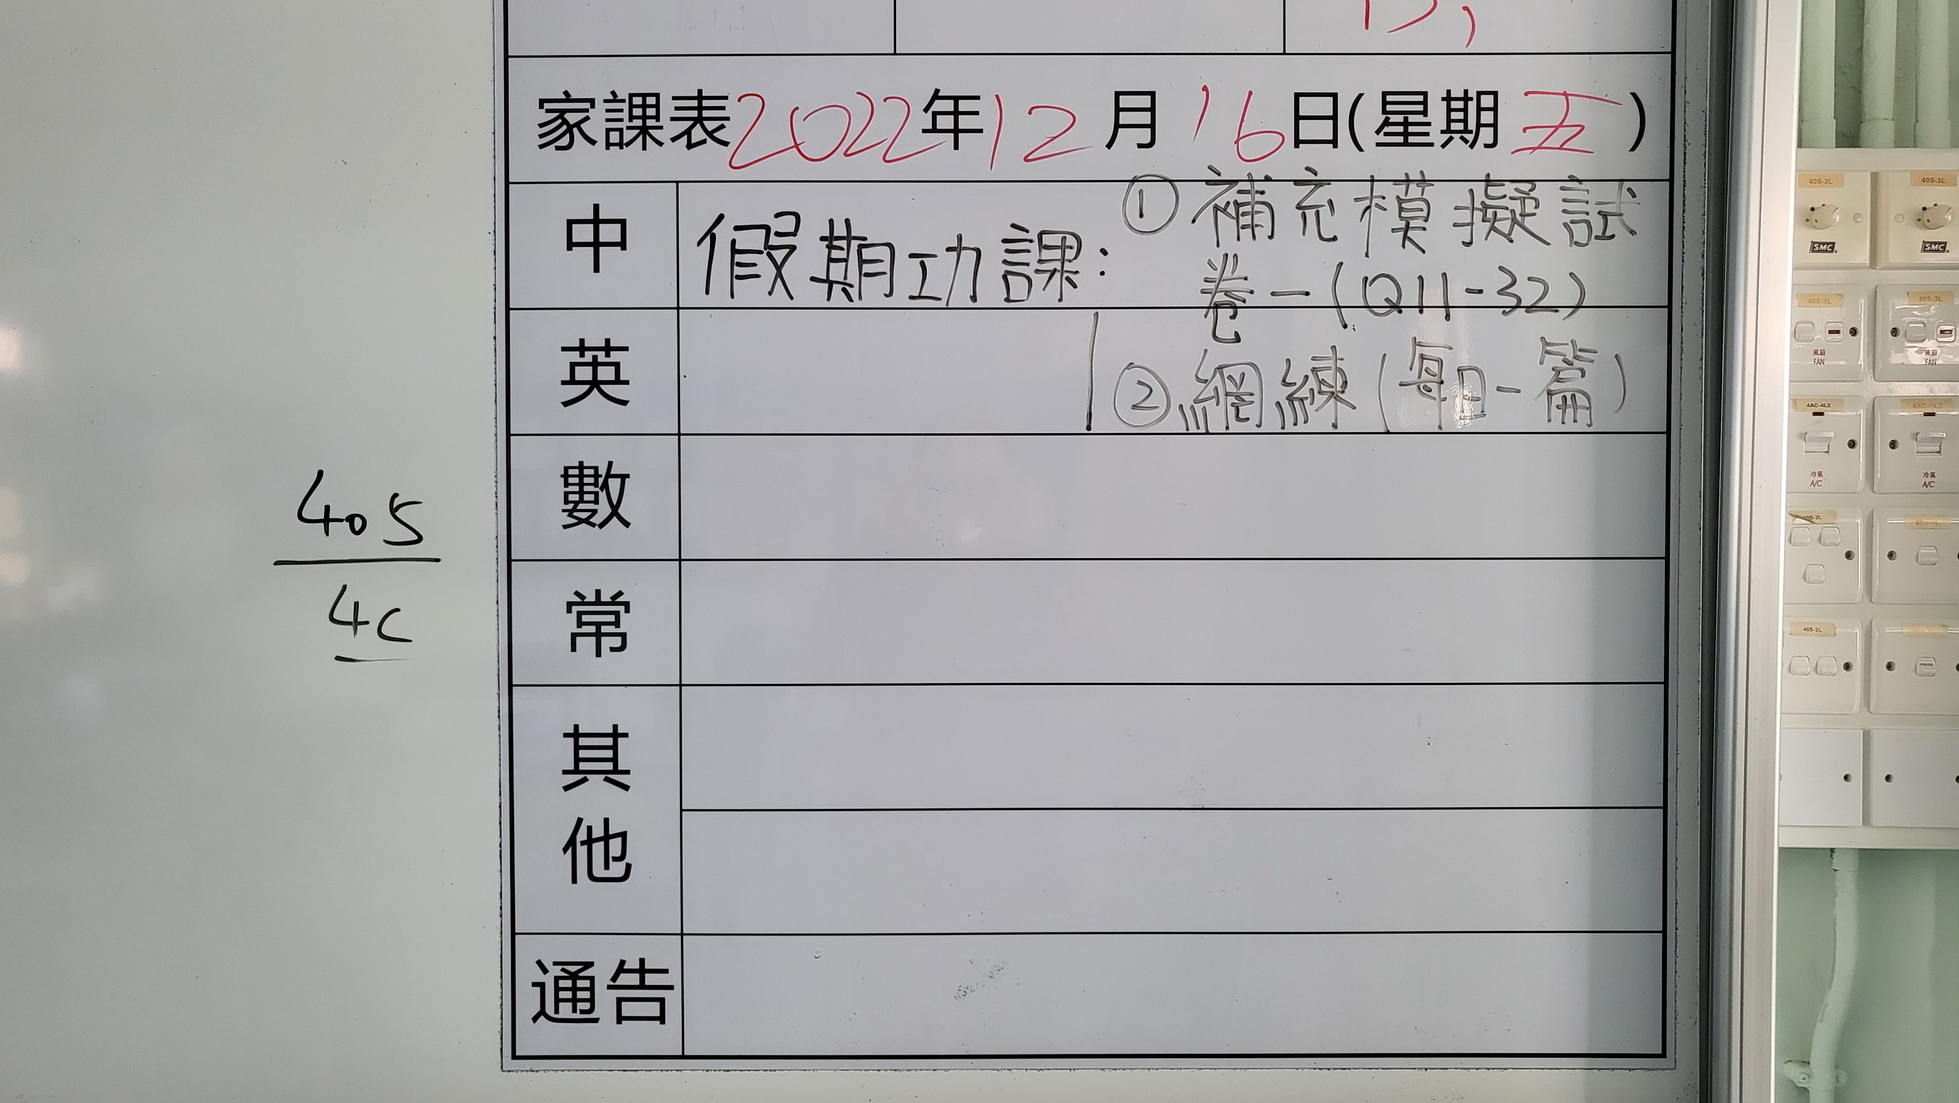 家課表2022年12月16日(星期五)
中
假期功課:
①補充模擬試
卷一(Q11-32)
英
②網練(每日一篇)
數
405
4C
常
其
他
通告
405-3L
405-3L
SMC
SMC
405-3L
405-3L
風扇
FAN
風扇
FAN
4AC-4L2
冷氣
A/C
冷氣
A/C
405-2L